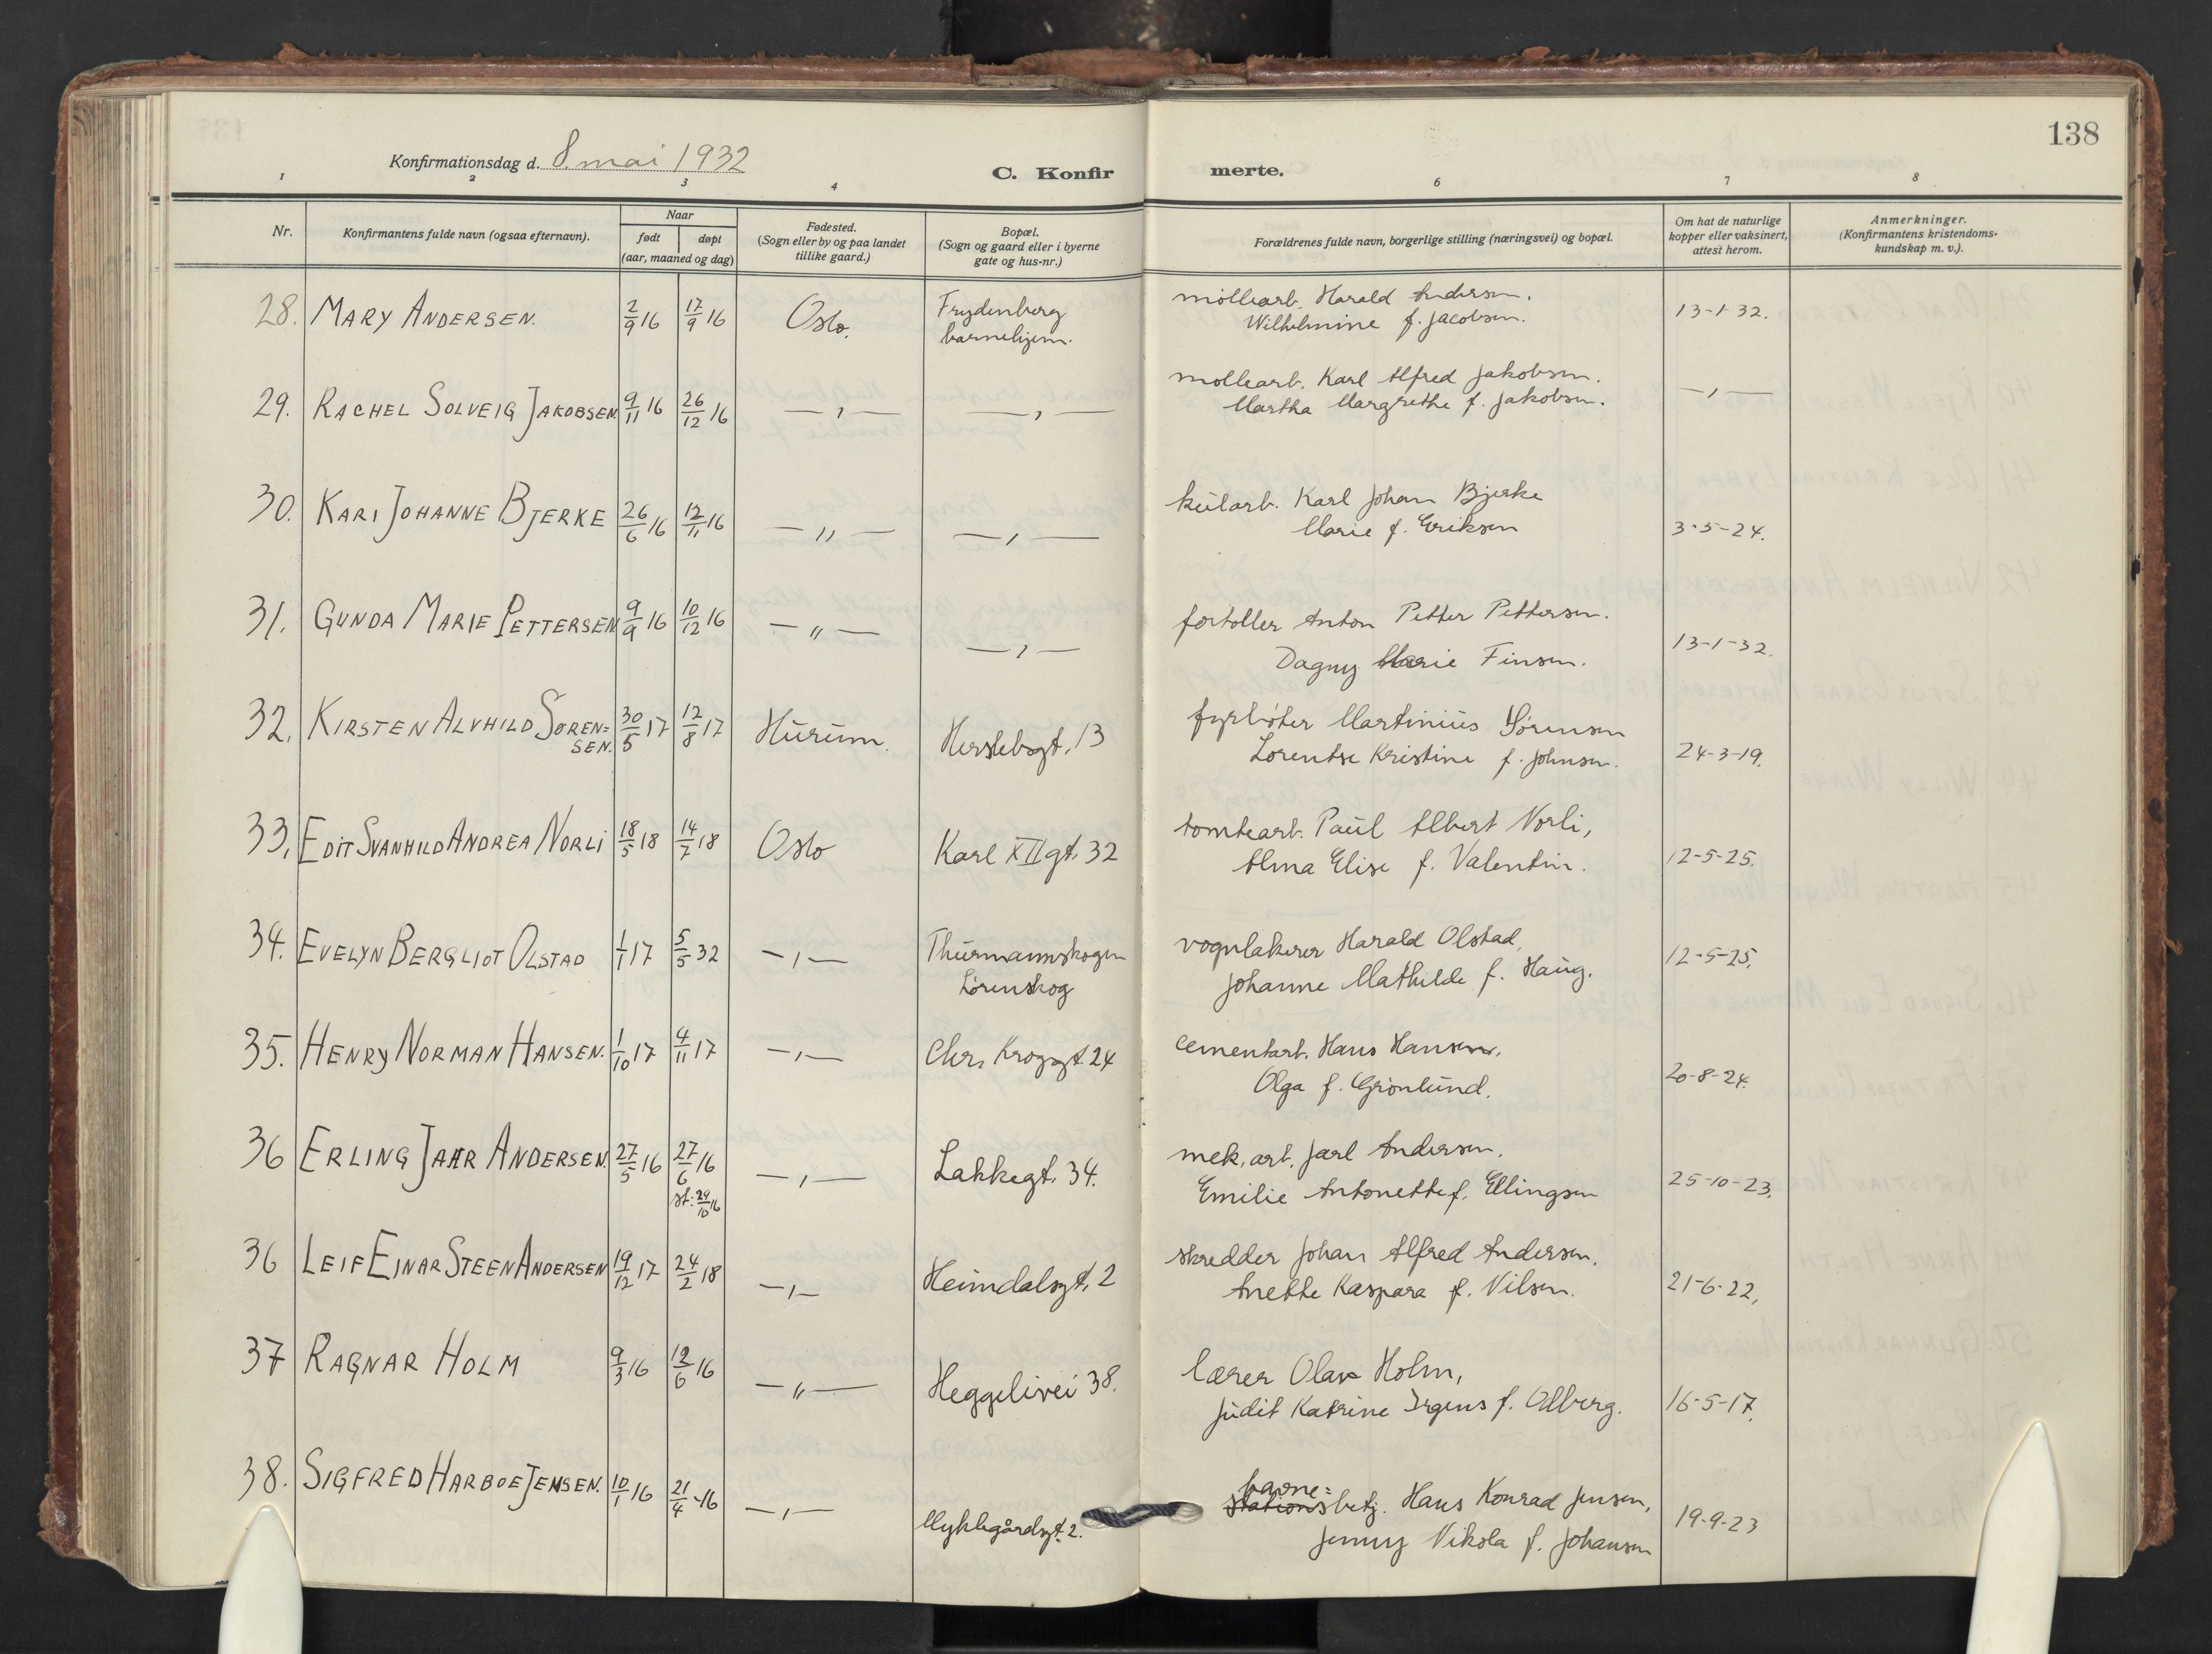 138
Konfirmationsdag d. 8. mai 1932
C. Konfir merte.
1 2 3 4 6 7 8
Nr.
Konfirmantens fulde navn (ogsaa efternavn).
Naar
født døpt
(aar, maaned og dag)
Fødested.
(Sogn eller by og paa landet
tillike gaard.)
Bopæl.
(Sogn og gaard eller i byerne
gate og hus-nr.)
Forældrenes fulde navn, borgerlige stilling (næringsvei) og bopæl.
Om hat de naturlige
kopper eller vaksinert,
attest herom.
Anmerkninger.
(Konfirmantens kristendoms-
kundskap m. v.).
28. MARY ANDERSEN. 2/9 16 17/9 16 Oslo. Frydenberg
barnehjem.
møllearb. Harald Andersen.
Wilhelmine f. Jacobsen.
13-1-32.
29. RACHEL SOLVEIG JAKOBSEN 9/11 16 26/12 16 —,— —,—
møllearb. Karl Alfred Jakobsen.
Martha Margrethe f. Jakobsen.
—,—
30. KARI JOHANNE BJERKE 26/6 16 12/11 16 —„— —,—
kularb. Karl Johan Bjerke
Marie f. Eriksen
3-5-24.
31. GUNDA MARIE PETTERSEN 9/9 16 10/12 16 —„— —,—
fortoller Anton Petter Pettersen.
Dagny Marie Finsen.
13-1-32.
32. KIRSTEN ALVHILD SØREN=
SEN. 30/5 17 12/8 17 Hurum. Herslebsgt. 13
fyrbøter Martinius Sørensen
Lorentse Kristine f. Johnsen.
24-3-19.
33. EDIT SVANHILD ANDREA NORLI 18/5 18 14/7 18 Oslo Karl XII gt. 32
tomtearb. Paul Albert Norli,
Alma Elise f. Valentin.
12-5-25.
34. EVELYN BERGLIOT OLSTAD 1/1 17 5/5 32 —,— Thurmannskogen
Lørenskog
vognlakerer Harald Olstad,
Johanne Mathilde f. Haug.
12-5-25.
35. HENRY NORMAN HANSEN. 1/10 17 4/11 17 —,— Chr. Kroggt. 24
cementarb. Hans Hansen.
Olga f. Grønlund.
20-8-24.
36 ERLING JAHR ANDERSEN. 27/5 16 27/6 16
st: 29/10 16 —,— Lakkegt. 34.
mek. arb. Jarl Andersen.
Emilie Antonette f. Ellingsen
25-10-23.
36 LEIF EINAR STEEN ANDERSEN 19/12 17 24/2 18 —,— Heimdalsgt. 2
skredder Johan Alfred Andersen.
Anette Kaspara f. Nilsen.
21-6-22,
37 RAGNAR HOLM 9/3 16 12/6 16 —„— Heggelivei 38.
lærer Olav Holm,
Judit Katrine Irgens f. Odberg.
16-5-17.
38. SIGFRED HARBOE JENSEN. 10/1 16 21/4-16 —,— Myklegårdsgt. 2.
bane=
stationsbetj. Hans Konrad Jensen,
Jenny Nikola f. Johansen
19-9-23